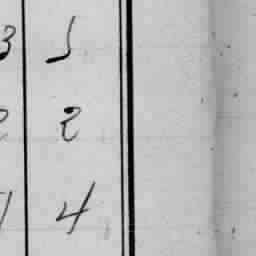 3 1
2 2
1 4